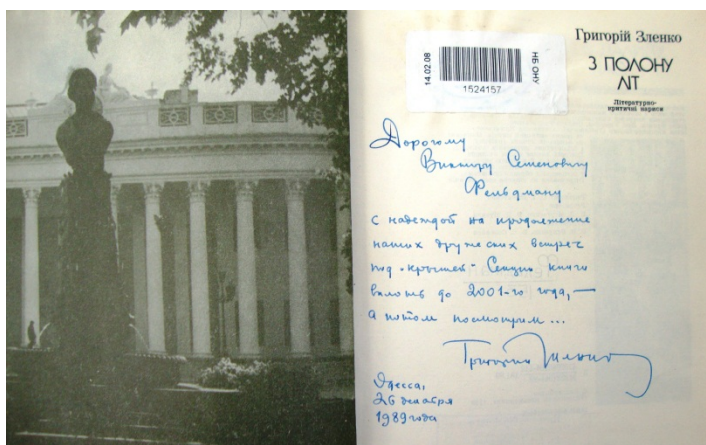 14.02.08
НБ ОНУ
1524157
Григорій Зленко
З ПОЛОНУ
ЛІТ
Літературно-
критичні нариси
Дорогому
Виктору Семеновичу
Фельдману
с надеждой на продолжение
наших дружеских встреч
под "крышей" Секции книги
вплоть до 2001-го года, —
а потом посмотрим...
Григорій Зленко
Одесса,
26 декабря
1989 года